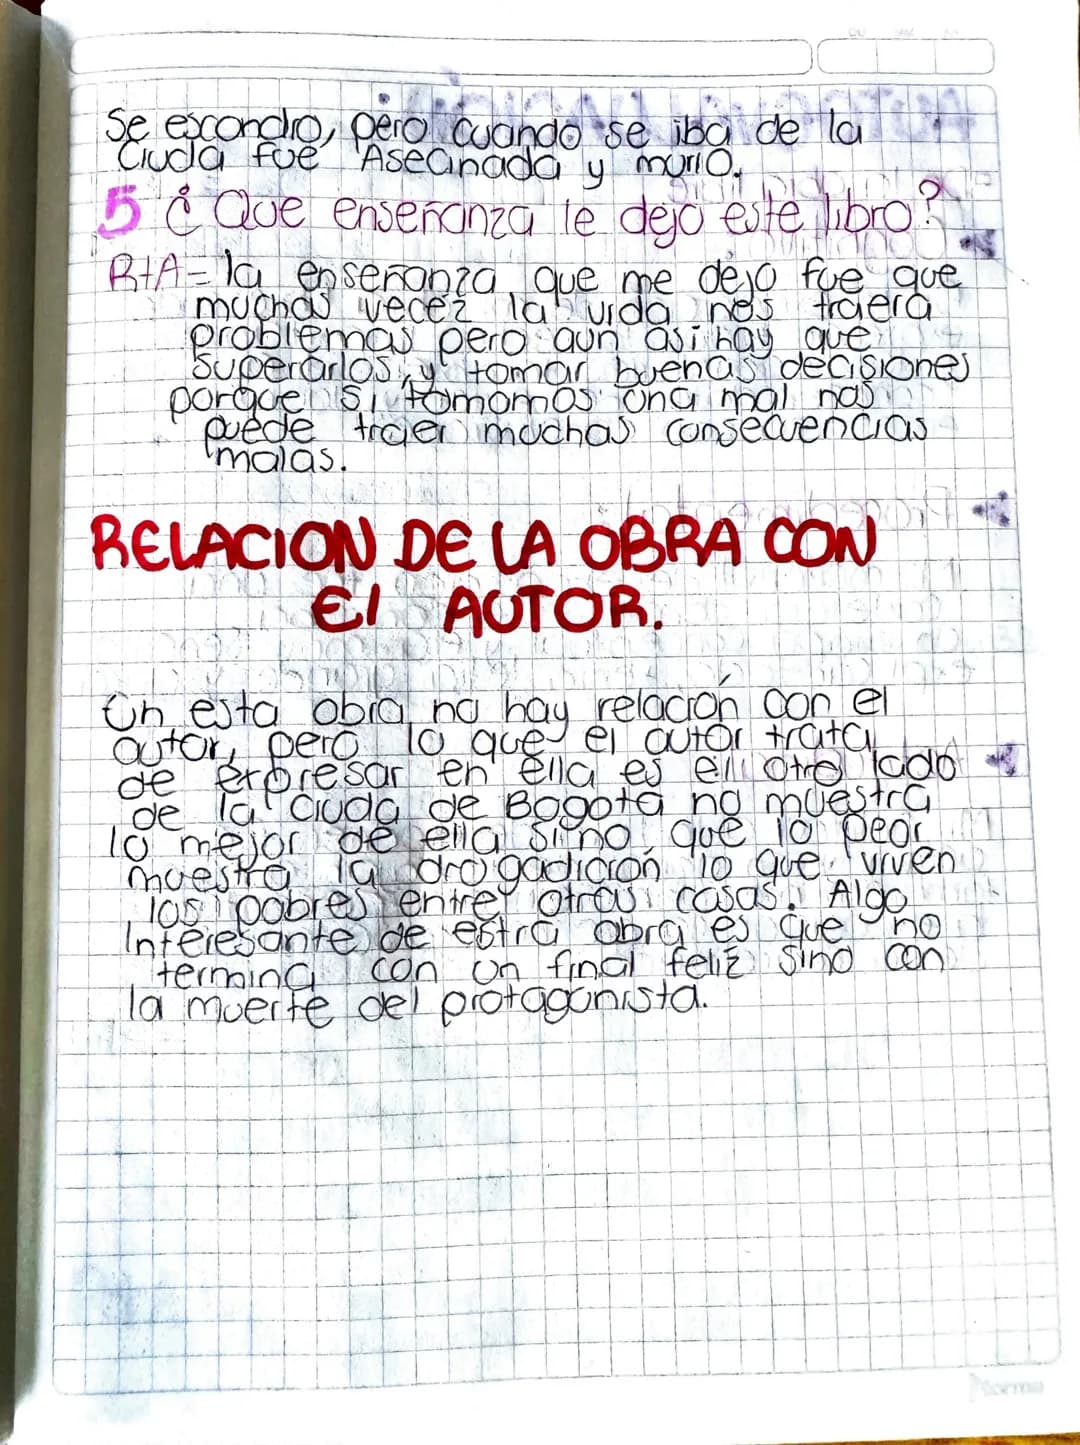 Se escondio, pero cuando se iba de la
Ciuda fue Asecinada y murio.
5 ¿Que enseñanza le dejo este libro?
R+A= la enseñanza que me dejo fue que
muchas vecez la vida nos traera
problemas pero aun asi hay que
superarlos y tomar buenas decisiones
porque si tomomos una mal nos
puede traer muchas consecuencias
malas.
RELACION DE LA OBRA CON
El AUTOR.
En esta obra no hay relación con el
autor, pero lo que el autor trata
de expresar en ella es el otro lado
de la ciuda de Bogotá no muestra
lo mejor de ella sino que lo peor
muestra la drogadicion lo que viven
los pobres entre otras casas. Algo
Interesante de estra obra es que no
termina con un final feliz sino con
la muerte del protagonista.
norma